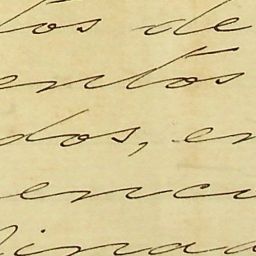 tos de
entos
dos, en
encu
linad